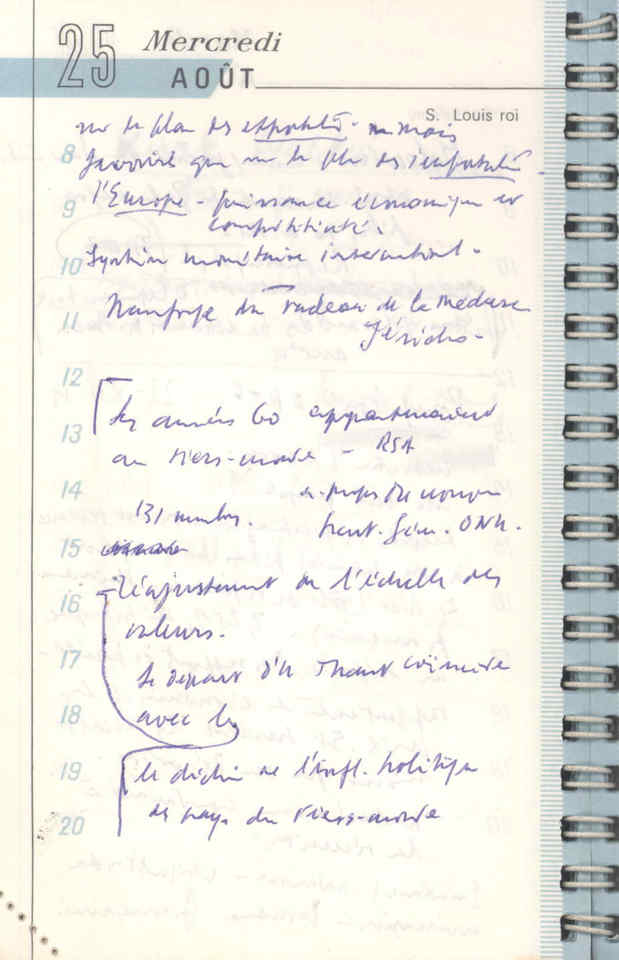 25 Mercredi
AOÛT
S. Louis roi
sur le plan des
8
que sur le plan des
9 l'Europe - puissance économique et
compétitivité.
10 Système monétaire internat.
11 Naufrage du radeau de la Méduse
Jéricho -
12
Les années 60 appartenaient
13
au tiers-monde - RSA
14
131 membres.
. Gén. ONU.
15
Réajustement de l'échelle des
16
valeurs.
17 Le départ d'U Thant coïncide
18 avec le
19 le déclin de l'infl. politique
20 des pays du tiers-monde